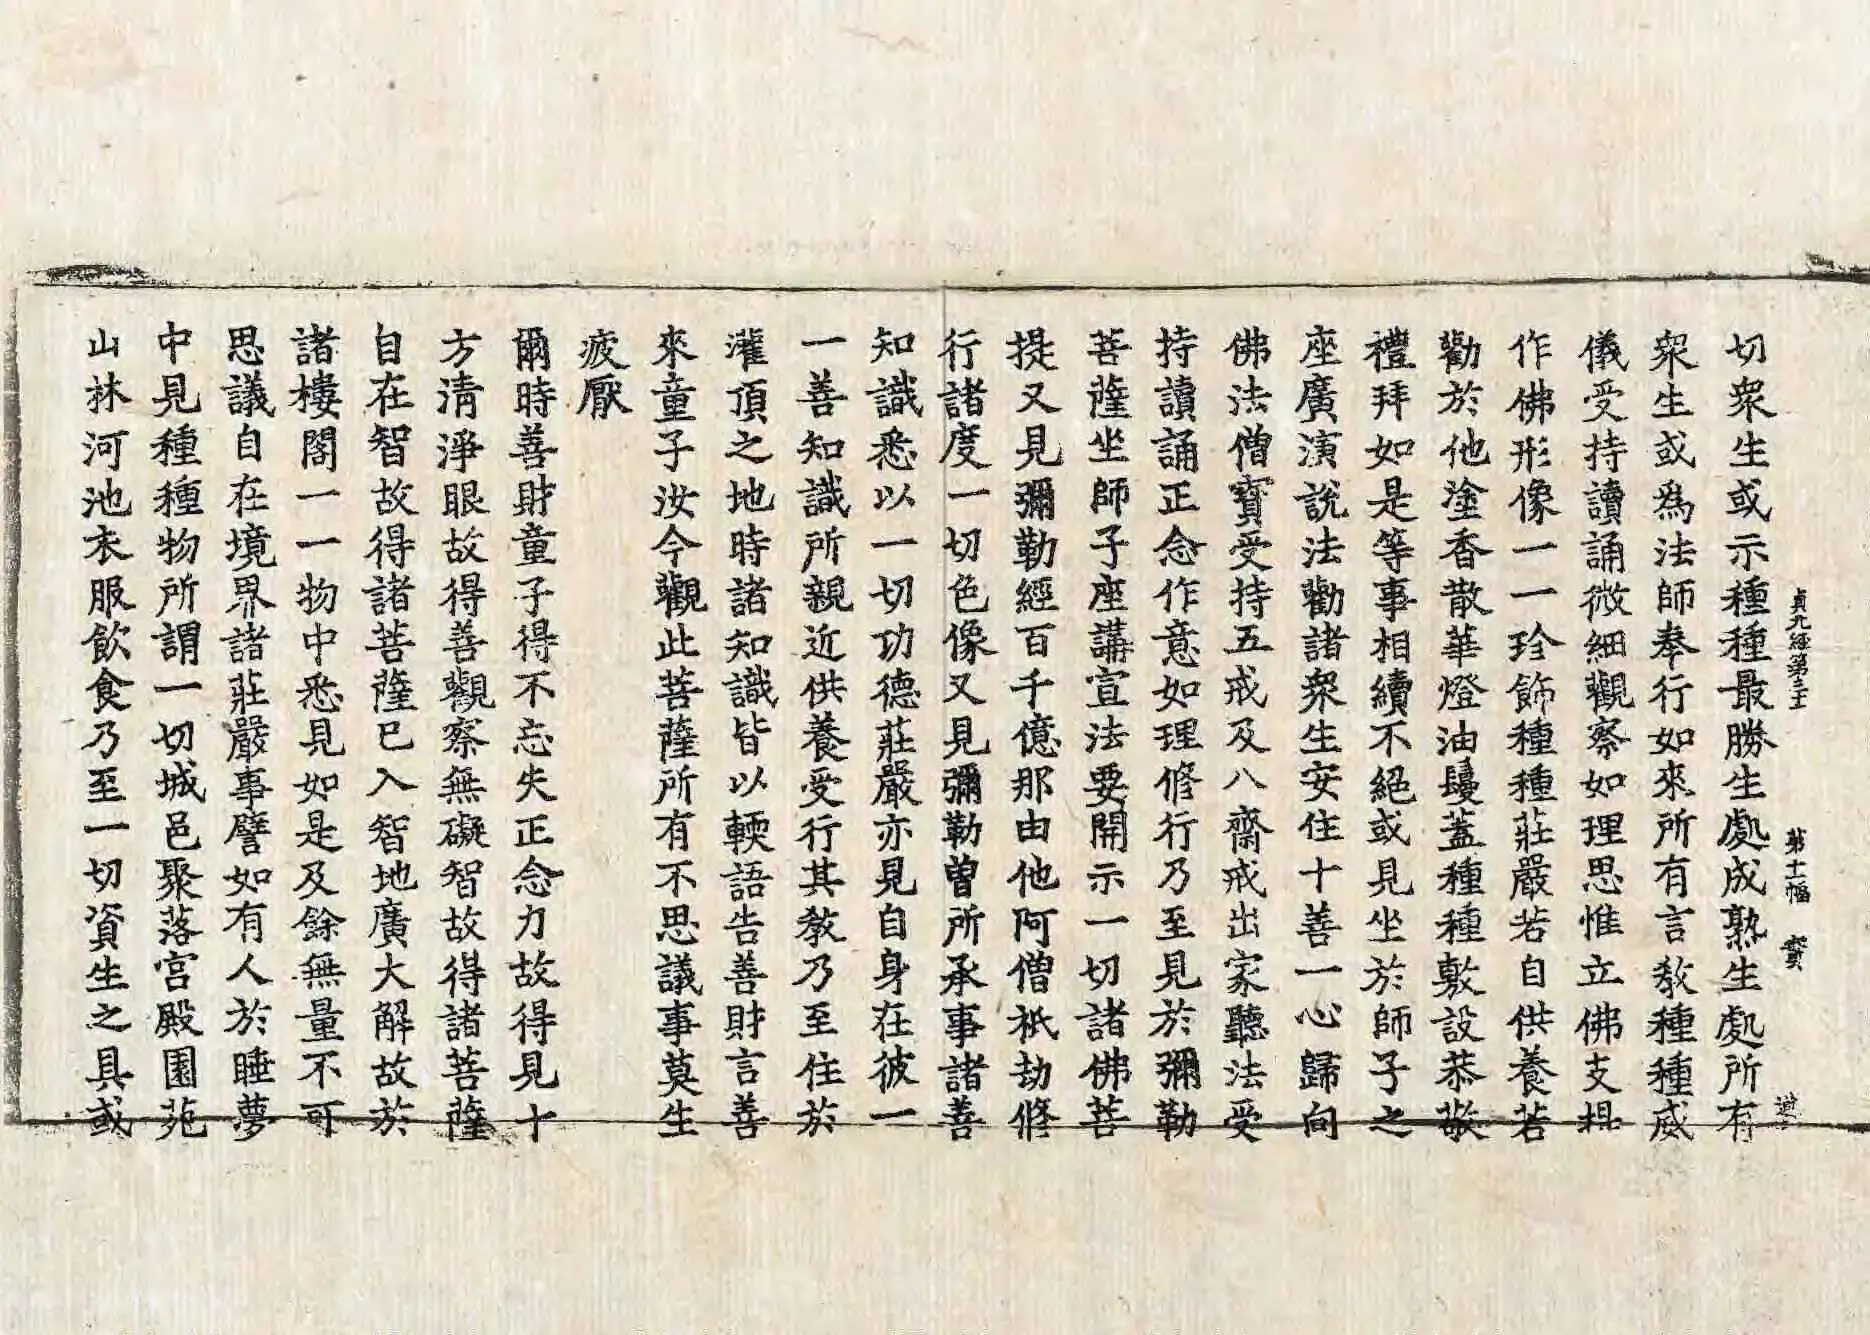 切衆生或示種種最勝生處成熟生處所有
衆生或為法師奉行如來所有言教種種威
儀受持讀誦微細觀察如理思惟立佛支提
作佛形像一一珍飾種種莊嚴若自供養若
勸於他塗香散華燈油鬘蓋種種敷設恭敬
禮拜如是等事相續不絕或見坐於師子之
座廣演說法勸諸衆生安住十善一心歸向
佛法僧寶受持五戒及八齋戒出家聽法受
持讀誦正念作意如理修行乃至見於彌勒
菩薩坐師子座講宣法要開示一切諸佛菩
提又見彌勒經百千億那由他阿僧祇劫修
行諸度一切色像又見彌勒曾所承事諸善
知識悉以一切功德莊嚴亦見自身在彼一
一善知識所親近供養受行其教乃至住於
灌頂之地時諸知識皆以輭語告善財言善
來童子汝今觀此菩薩所有不思議事莫生
疲厭
爾時善財童子得不忘失正念力故得見十
方清淨眼故得善觀察無礙智故得諸菩薩
自在智故得諸菩薩已入智地廣大解故於
諸樓閣一一物中悉見如是及餘無量不可
思議自在境界諸莊嚴事譬如有人於睡夢
中見種種物所謂一切城邑聚落宮殿園苑
山林河池衣服飲食乃至一切資生之具或